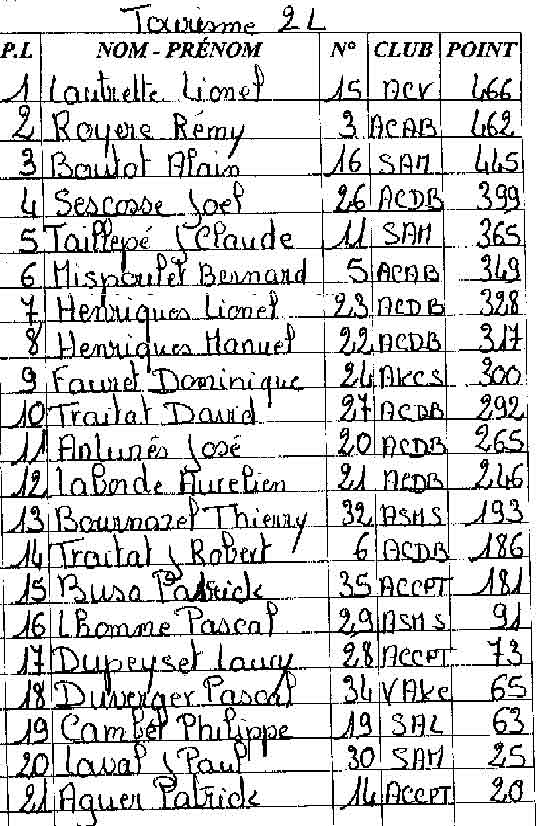 Tourisme 2L
P.L NOM - PRÉNOM N° CLUB POINT
1 Lautrette Lionel 15 ACV 466
2 Royere Rémy 3 ACAB 462
3 Boutot Alain 16 SAM 445
4 Sescosse Joel 26 ACDB 399
5 Taillepé J Claude 11 SAM 365
6 Mispoulet Bernard 5 ACAB 349
7 Henriques Lionel 23 ACDB 328
8 Henriques Manuel 22 ACDB 317
9 Fauret Dominique 24 AKCS 300
10 Traitat David 27 ACDB 292
11 Antunés José 20 ACDB 265
12 Laborde Aurelien 21 ACDB 246
13 Bournazel Thierry 32 ASMS 193
14 Traitat J Robert 6 ACDB 186
15 Busa Patrick 35 ACCPT 181
16 Lhomme Pascal 29 ASMS 91
17 Dupeyset Laucy 28 ACCPT 73
18 Duverger Pascal 34 VAKC 65
19 Cambel Philippe 19 SAL 63
20 Laval J Paul 30 SAM 25
21 Aguer Patrick 14 ACCPT 20